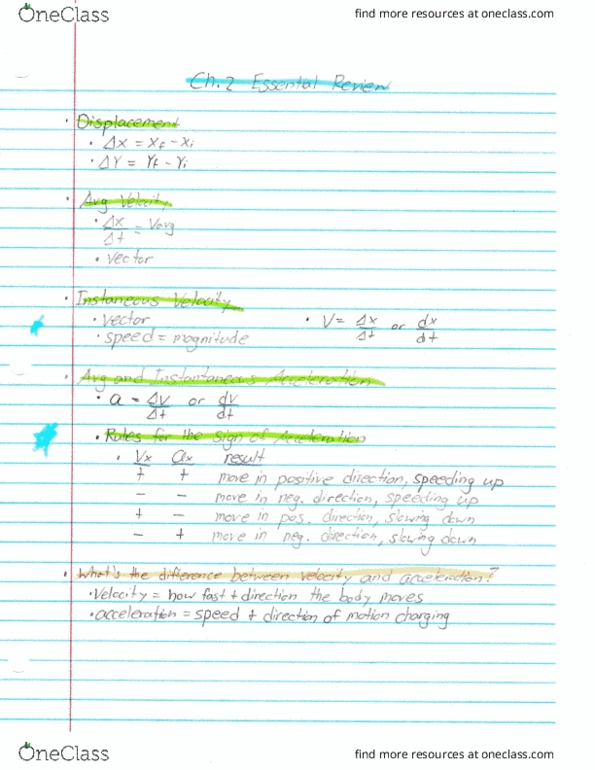 OneClass find more resources at oneclass.com
Ch.2 Essential Review
• Displacement
• Δx = xf - xi
• ΔY = Yf - Yi
• Avg Velocity
• Δx/Δt = Vavg
• vector
• Instaneous Velocity
• vector • V = Δx/Δt or dx/dt
• speed = magnitude
• Avg and Instantaneous Acceleration
• a = Δv/Δt or dv/dt
• Rules for the Sign of Acceleration
• Vx ax result
+ + move in positive direction, speeding up
- - move in neg. direction, speeding up
+ - move in pos. direction, slowing down
- + move in neg. direction, slowing down
• What's the difference between velocity and acceleration?
• Velocity = how fast + direction the body moves
• acceleration = speed + direction of motion changing
OneClass find more resources at oneclass.com